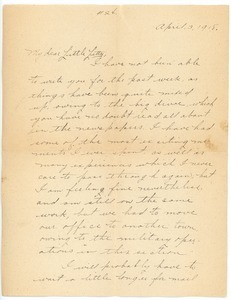 April 3, 1918.
My dear Little Lotty.
I have not been able
to write you for the past week as
things have been quite mixed
up owing to the big drive, which
you have no doubt read all about
in the news papers. I have had
some of the most exciting mo-
ments I ever spent as well as
many experiences which I never
care to pass through again, but
I am feeling fine nevertheless
and am still on the same
work, but we had to move
our office to another town
owing to the military oper-
ations in this section.
I will probably have to
wait a little longer for mail